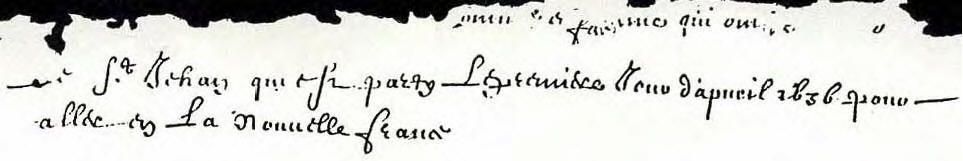 qui ont
Le St Jehan qui est party Le premier Jour d'apvril 1636 pour
aller en La Nouvelle france